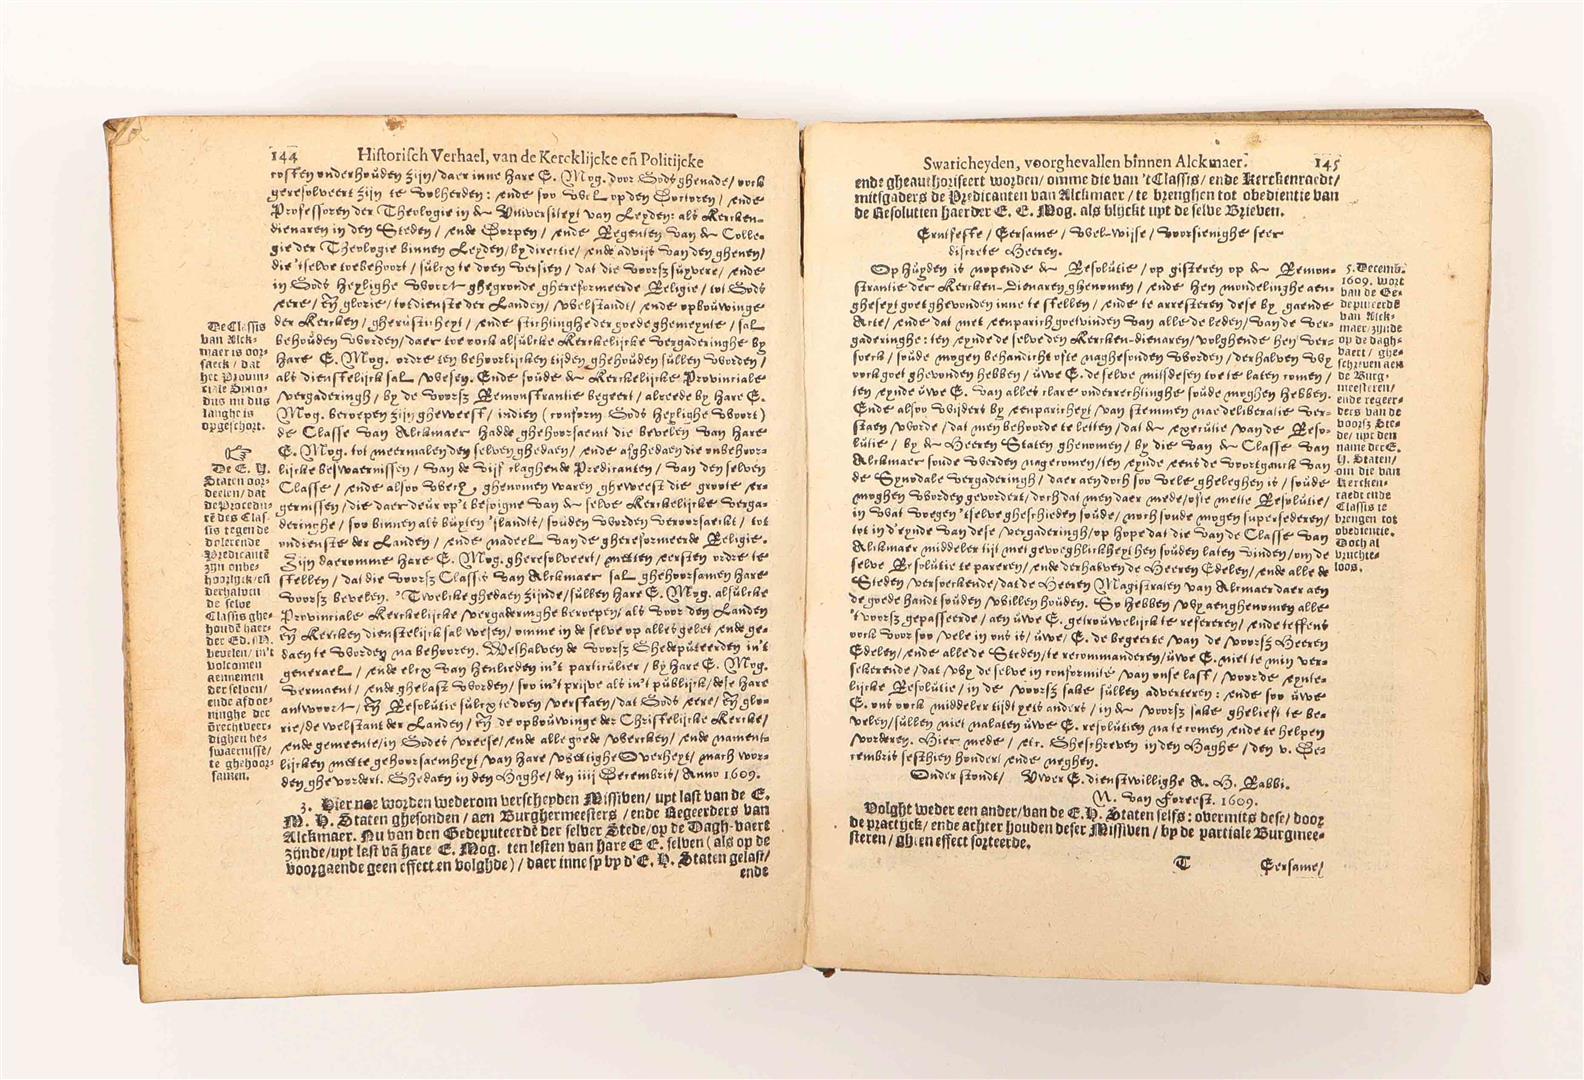 144 Historisch Verhael, van de Kercklijcke eñ Politijcke
costen onderhouden zijn/ daer inne hare E. Mog. door Gods ghenade/ oock
geresolveert zijn te volherden: ende soo wel op den Doctoren/ ende
Professoren der Theologie in de Universiteyt van Leyden: als Kercken-
dienaren in den Steden/ ende Dorpen/ ende Regenten van de Colle-
gie der Theologie binnen Leyden/ by directie/ ende advijs van den ghenen/
die 'tselve toebehoort/ sulcx te doen versien/ dat die voorsz suyvere/ ende
in Gods heylighe woort ghegronde ghereformeerde Religie/ tot Gods
eere/ eñ glorie/ tot dienste der Landen/ welstandt/ ende opbouwinge
der Kercken/ gherusticheyt/ ende stichtinghe der goede ghemeynte/ sal
behouden worden/ daer toe oock alsulcke Kerckelijcke vergaderinghe by
hare E. Mog. ordre ten behoorlijcken tijden ghehouden sullen worden/
als dienstelijck sal wesen. Ende soude de Kerckelijcke Provinciale
vergaderingh/ by de voorsz Remonstrantie begeert/ alreede by hare E.
Mog. beroepen zijn gheweest/ indien (conform Gods heylighe woort)
de Classe van Alckmaer hadde ghehoorsaemt die bevelen van hare
E. Mog. tot meermalen den selven ghedaen/ ende afghedaen die onbehoor-
lijcke beswaernissen/ van de vijf claghende Predicanten/ van den selven
Classe/ ende alsoo wech ghenomen waren gheweest die groote er-
gernissen/ die daer deur op 't besoigne van de selve Kerckelijcke verga-
deringhe/ soo binnen als buyten 'slandts/ souden worden veroorsaeckt/ tot
ondienste der Landen/ ende nadeel van de ghereformeerde Religie.
Zijn daeromme hare E. Mog. gheresolveert/ metten eersten ordre te
stellen/ dat die voorsz Classis van Alckmaer sal ghehoorsamen hare
voorsz bevelen. 'Twelcke ghedaen zijnde/ sullen hare E. Mog. alsulcke
Provinciale Kerckelijcke vergaderinghe beroepen/ als voor den Landen
eñ Kercken dienstelijck sal wesen/ omme in de selve op alles gelet/ ende ge-
daen te worden na behooren. Weshalven de voorsz Ghedeputeerden in't
generael/ ende elcx van henlieden in't particulier/ by hare E. Mog.
vermaent/ ende ghelast worden/ soo in't prijve als in't publijck/ dese hare
antwoort/ eñ Resolutie sulcx te doen/ verstaen/ dat Gods eere/ eñ glo-
rie/ de welstant der Landen/ eñ de opbouwinge der Christelijcke Kercke/
ende gemeente/ in Godes vreese/ ende alle goede wercken/ ende nament-
lijcken mette gehoorsaemheyt van hare wettighe Overheyt/ mach wor-
den ghevordert. Ghedaen in den Haghe/ den iiij Decembris/ Anno 1609.
3. Hier nae worden wederom verscheyden Missiven/ uyt last van de E.
M. H. Staten ghesonden/ aen Burghermeesters/ ende Regeerders van
Alckmaer. Nu van den Gedeputeerdē der selver Stede/ op de Dagh-vaert
zijnde/ uyt last vā hare E. Mog. ten lesten van hare E E. selven (als op de
voorgaende geen effect en volghde)/ daer inne sy by d'E. H. Staten gelast/
ende
De Classis
van Alck-
maer is oor-
saeck/ dat
het Provin-
ciale Sino-
dus nu dus
langhe is
opgeschort.
☞
De E. H.
Staten oor-
deelen/ dat
de Procedu-
rē des Clas-
sis tegen de
dolerende
Predicantē
zijn onbe-
hoorlijck/ eñ
derhalven
de selve
Classis ghe-
houdē haer-
der Ed. M.
bevelen/ in't
volcomen
aennemen
der selven/
ende afdoe-
ninghe der
Grechtveer-
dighen be-
swaernisse/
te ghehoor-
samen.
Swaricheyden, voorghevallen binnen Alckmaer. 145
ende gheauthoriseert worden/ omme die van 'tClassis/ ende Kerckenraedt/
mitsgaders de Predicanten van Alckmaer/ te brenghen tot obedientie van
de Resolutien haerder E. E. Mog. als blijckt uyt de selve Brieven.
Erntfeste/ Eersame/ Wel-wijse/ voorsienighe seer
discrete Heeren.
Op huyden is nopende de Resolutie/ op gisteren op de Remon-
strantie der Kercken-Dienaren ghenomen/ ende hen mondelinghe aen-
gheseyt goet ghevonden inne te stellen/ ende te arresteren dese by gaende
Acte/ ende dat met eenparich goetvinden van alle de leden/ van de ver-
gaderinghe: ten eynde de selve den Kercken-dienaren/ volghende hen ver-
soeck/ soude mogen behandicht ofte naghesonden worden/ derhalven wy
oock goet ghevonden hebben/ uwe E. de selve mitsdesen toe te laten comen/
ten eynde uwe E. van alles clare onderrechtinghe soude moghen hebben.
Ende alsoo wijdert by eenparicheyt van stemmen nae deliberatie ver-
staen worde/ dat men behoorde te letten/ dat de executie van de Reso-
lutie/ by de Heeren Staten ghenomen/ by die van de Classe van
Alckmaer soude werden nagecomen/ ten eynde eens de voortganck van
de Synodale vergaderingh/ daer aen doch soo vele gheleghen is/ soude
moghen worden gevordert/ doch dat men daer mede/ ofte mette Resolutie/
in wat voegen 'tselve gheschieden soude/ noch soude mogen supersederen/
tot in d'eynde van dese vergaderingh/ op hope dat die van de Classe van
Alckmaer middeler tijt met gevoeghlicheyt hen souden laten vinden/ om de
selve Resolutie te pareren/ ende derhalven de Heeren Edelen/ ende alle de
Steden/ versoeckende/ dat de Heeren Magistraten van Alcmaer daer aen
de goede handt souden willen houden. So hebben wy aenghenomen alle
't voorsz gepasseerde/ aen uwe E. getrouwelijck te refereren/ ende teffens
oock voor soo vele in ons is/ uwe E. de begeerte van de voorsz Heeren
Edelen/ ende alle de Steden/ te recommanderen/ uwe E. niet te min ver-
sekerende/ dat wy de selve in conformite van onse last/ voorde eynte-
lijcke Resolutie/ in de voorsz sake sullen adverteren: ende soo uwe
E. ons oock middeler tijdt yets anders/ in de voorsz sake ghelieft te be-
velen/ sullen niet nalaten uwe E. resolutien na te comen/ ende te helpen
vorderen. Hier mede/ etc. Gheschreven in den Haghe/ den v. De-
cembris sesthien hondert ende neghen.
Onder stondt/ Uwer E. dienstwillighe A. H. Rabbi.
N. van Foreest. 1609.
Volght weder een ander/ van de E. H. Staten selfs: overmits dese/ door
de practijck/ ende achter houden deser Missiven/ by de partiale Burgmee-
steren/ gheen effect sorteerde.
T Eersame/
5. Decemb.
1609. wort
van de Ge-
deputeerdē
van Alck-
maer/ zijnde
op de dagh-
vaert/ ghe-
schreven aen
de Burg-
meesteren/
ende regeer-
ders van de
voorsz Ste-
de/ uyt den
name der E.
H. Staten/
om die van
Kercken-
raedt ende
Classis te
brengen tot
obedientie.
Doch al
vruchte-
loos.